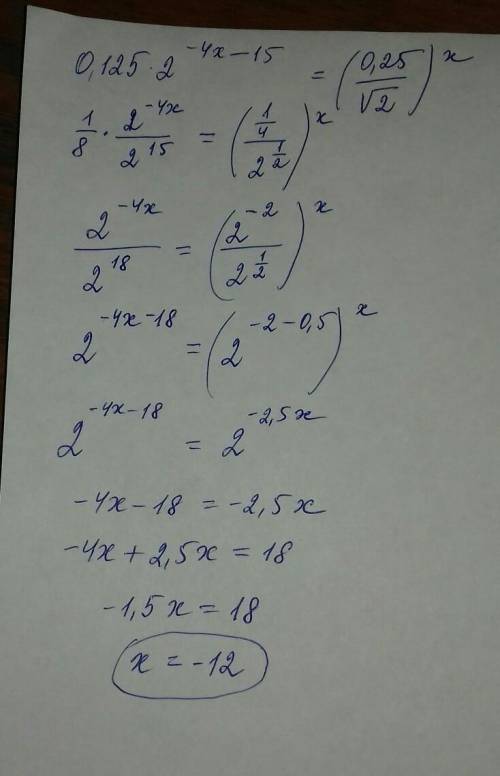 0,125 · 2^(-4x-15) = (0,25/√2)^x
1/8 · 2^(-4x)/2^15 = ((1/4)/2^(1/2))^x
2^(-4x)/2^18 = (2^(-2)/2^(1/2))^x
2^(-4x-18) = (2^(-2-0,5))^x
2^(-4x-18) = 2^(-2,5x)
-4x-18 = -2,5x
-4x+2,5x = 18
-1,5x = 18
x = -12